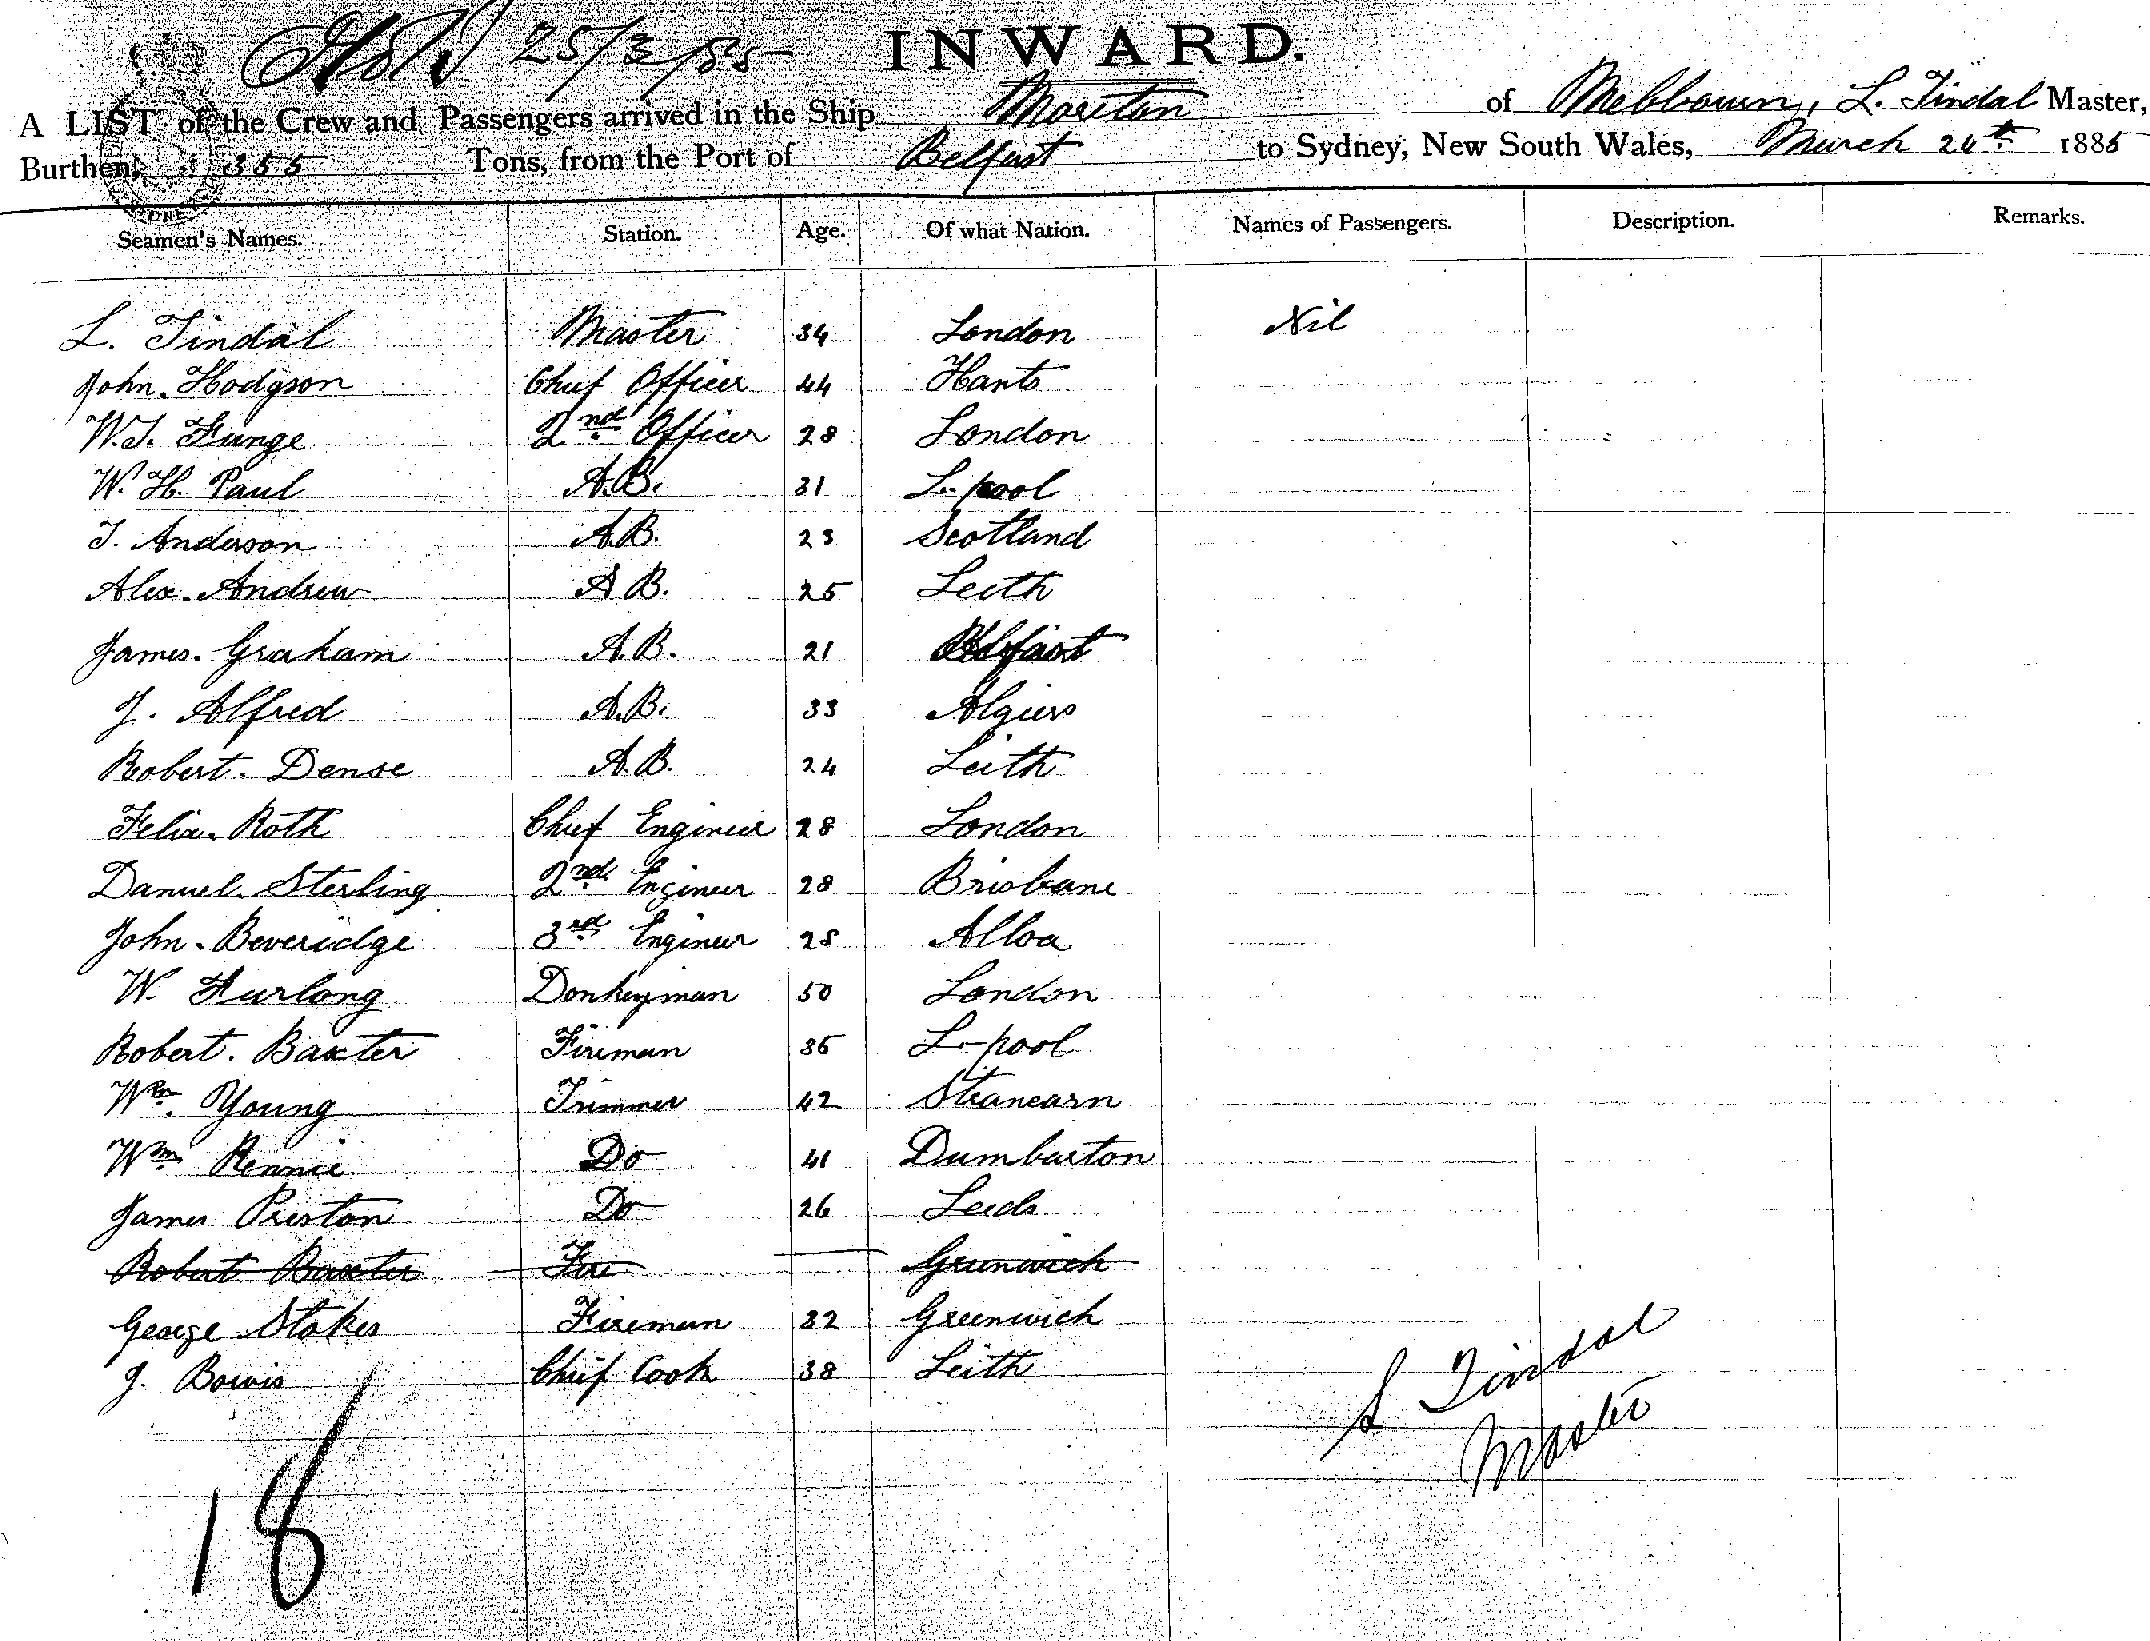 25/3/85 INWARD.
A LIST of the Crew and Passengers arrived in the Ship Moreton of Melbourn, L. Tindal Master,
Burthen, 355 Tons, from the Port of Belfast to Sydney, New South Wales, March 24th 1885
Seamen's Names. Station. Age. Of what Nation. Names of Passengers. Description. Remarks.
L. Tindal Master 34 London Nil
John. Hodgson Chief Officer 44 Hants
W.T. Funge 2nd Officer 28 London
W. H. Paul A.B. 31 L-pool
T. Anderson A.B. 23 Scotland
Alex. Andrew A B. 25 Leith
James. Graham A.B. 21 Belfast
J. Alfred A.B. 33 Algiers
Robert. Dense A.B. 24 Leith
Felix. Roth Chief Engineer 28 London
Danuel. Sterling 2nd Engineer 28 Brisbane
John. Beveridge 3rd Engineer 28 Alloa
W. Furlong Donkeyman 50 London
Robert. Baxter Fireman 36 L-pool
Wm. Young Trimmer 42
Wm Rennie Do 41 Dumbarton
James Preston Do 26 Leeds
Robert Baxter Fire Greenwich
George Stokes Fireman 32 Greenwich
J. Bowis Chief Cook 38 Leith
L Tindal
Master
18